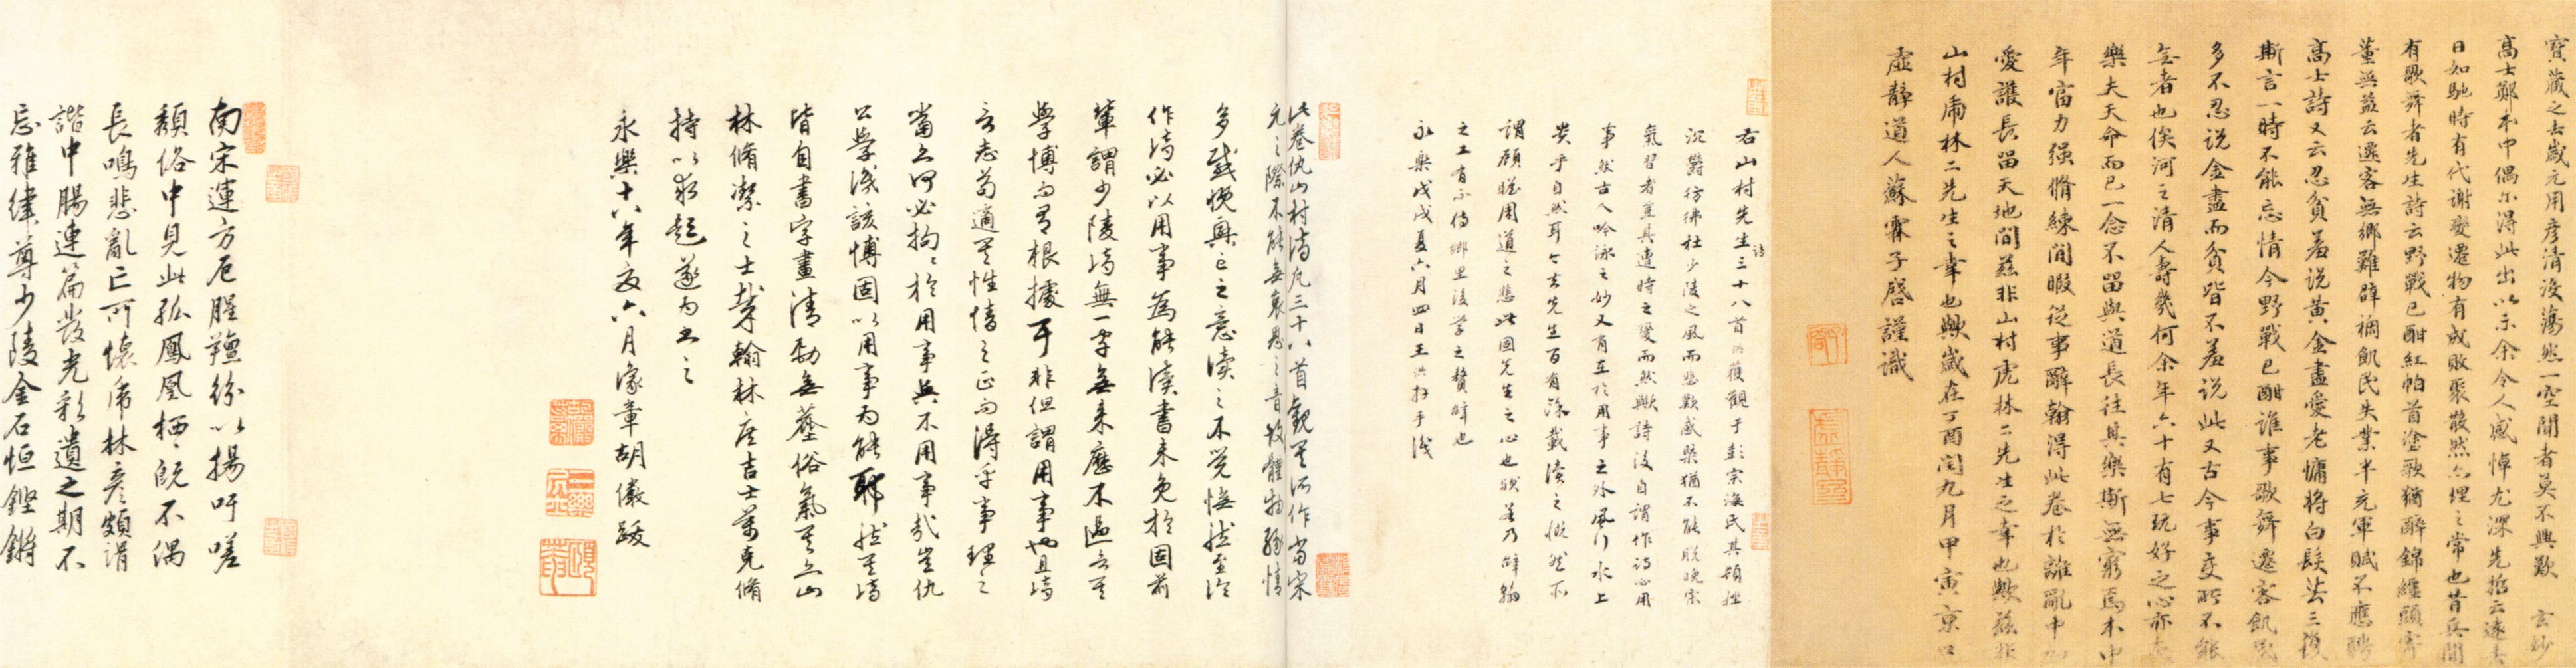 寶藏之去歲元用彥清沒蕩然一空聞者莫不興歎　玄妙
高士鄭本中偶爾得此出以示余令人感悼尤深先拈云遠
日如馳時有代謝變遷物有成敗聚散然亦理之常也昔兵間
有歌舞者先生詩云野戰已酣紅帕首塗歌猶醉錦纏頭寄
董無益云遷客無鄉難辟禍飢民失業半充軍賦不應聘
高士詩又云忍貧羞說黃金盡愛老慵將白髮芸三復
斯言一時不能忘情今野戰已酣誰事歌舞遷客飢民
多不忍說金盡而貧皆不羞說此又古今事變所不能
無者也俟河之清人壽幾何余年六十有七玩好之心亦
樂夫天命而已一念不留與道長往其樂斯無窮焉本中
年富力强脩練閒暇從事辭翰得此卷於離亂中
愛護長留天地間茲非山村虎林二先生之幸也歟茲非
山村虎林二先生之幸也歟歲在丁酉閏九月甲寅京口
虛靜道人蘇霖子啓謹識
右山村先生詩三十八首洪獲觀于彭宗海氏其頓挫
沉鬱彷彿杜少陵之風而悲歎感槩猶不能脫晚宋
氣習者豈其遭時之變而然歟詩後自謂作詩必用
事然古人吟詠之妙又有在於用事之外風行水上
貴乎自然耳七言先生百有餘載讀之慨然不
謂顧瞻周道之悲此固先生之心也哉若乃辭翰
之工有不待鄉里後學之贅辭也
永樂戊戌夏六月四日王洪抃手識
此卷仇山村詩凡三十八首觀其所作當宋
元之際不能無哀思之音故體物緣情
多感慨興亡之意讀之不覺憮然至論
作詩必以用事為能讀書未免於固前
輩謂少陵詩無一字無來歷不過言其
學博而有根據耳非但謂用事也且詩
言志苟適其性情之正而得乎事理之
當亦何必拘拘於用事與不用事哉豈仇
公學識該博固以用事為能耶然其詩
皆自書字畫清勁無塵俗氣其亦山
林脩潔之士哉翰林庶吉士萬克脩
持以求題遂為書之
永樂十八年夏六月豫章胡儼跋
南宋運方厄腥羶紛以揚吁嗟
頹俗中見此孤鳳凰栖栖既不偶
長鳴悲亂亡可懷虎林彥頗謂
諧中腸連篇發光彩遺之期不
忘雅律尊少陵金石恒鏗鏘